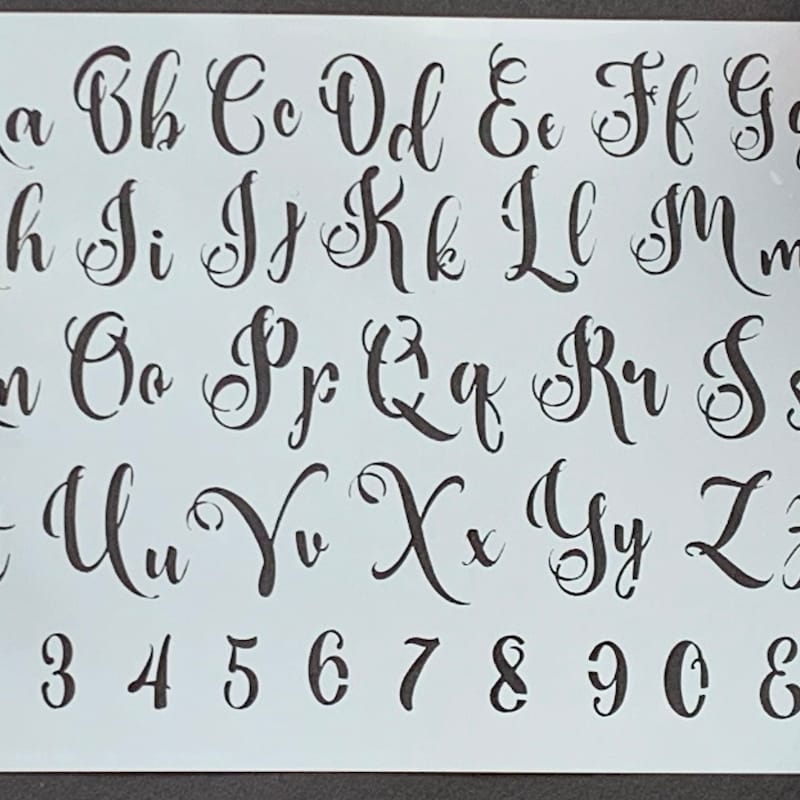 a Bb Cc Dd Ee Ff Gg
h Ii Jj Kk Ll Mm
n Oo Pp Qq Rr Ss
t Uu Vv Xx Yy Zz
3 4 5 6 7 8 9 0 &